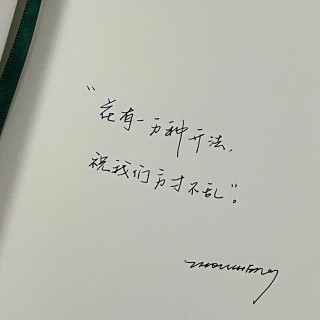 “花有一万种开法,
祝我们方寸不乱”。